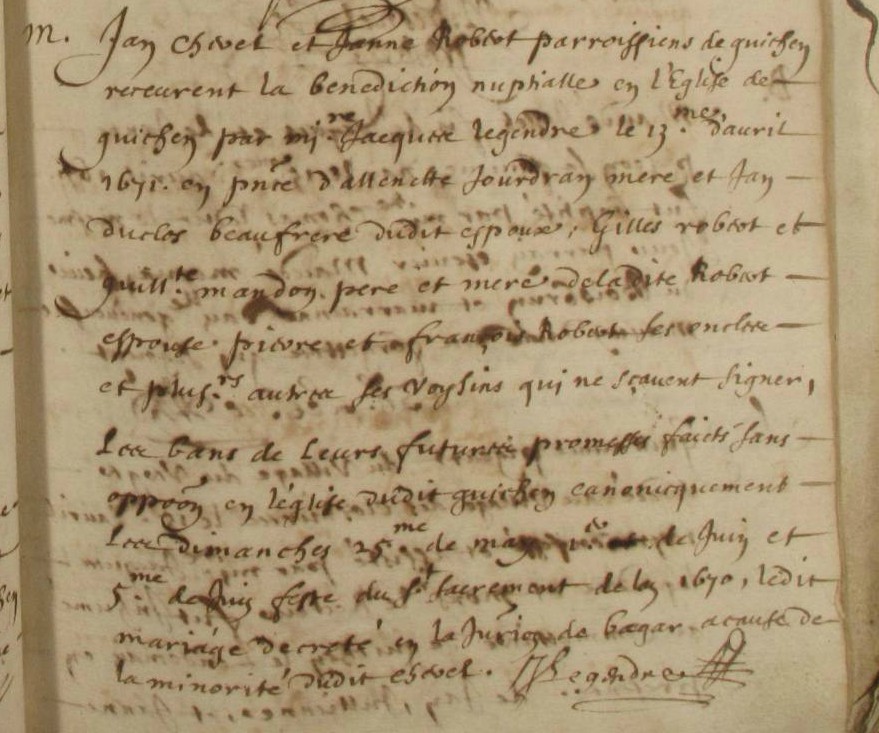 m. Jan chevel et Janne Robert parroissiens de guichen
receurent la benediction nuptialle en l'Eglise de
guichen par mi.re Jacques legendre le 13.me d'auril
1671. en pnce d'allenette Jourdran mere et Jan
duclos beaufrere dudit espoux, Gilles robert et
guill.te mandon pere et mere de ladite Robert
espouse, pierre et françois Robert ses oncles
et plus.rs autres ses voysins qui ne scauent signer,
Les bans de leurs futures promesses faicts sans
oppoon en l'église dudit guichen canonicquement
Les dimanches 25.me de may 1.er de Juin et
5.me de Juin feste du st sacrement de lan 1670, ledit
mariage decreté en la Juridion de bagar a cause de
la minorité dudit chevel. J Legendre